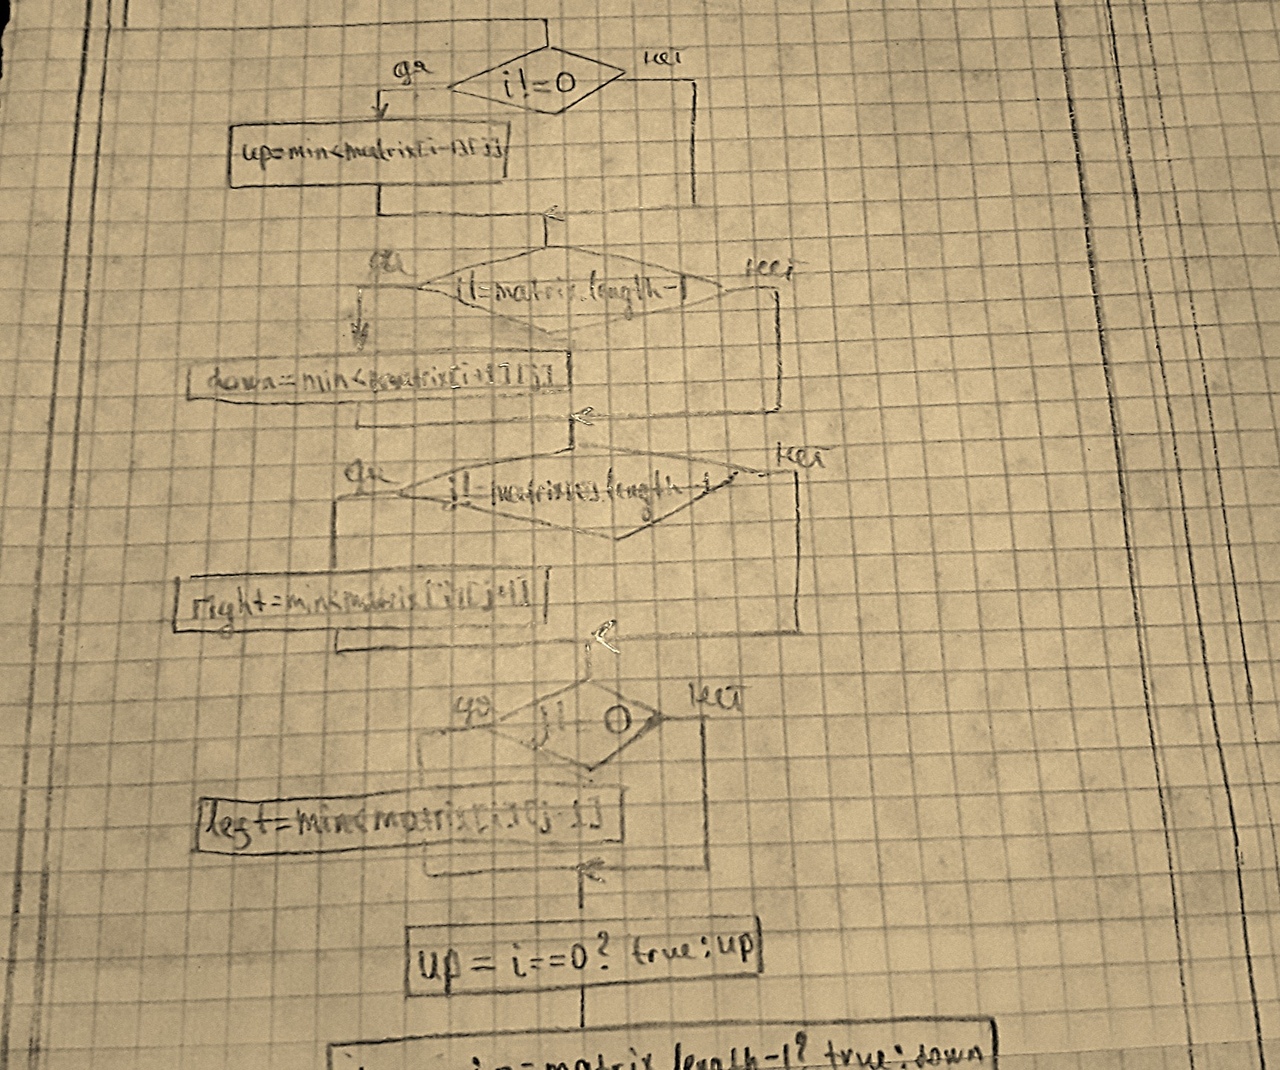 i!=0
да
нет
up=min<matrix[i-1][j]
да
i!=matrix.length-1
нет
down=min<matrix[i+1][j]
да
нет
right=min<matrix[i][j+1]
да
j!=0
нет
left=min<matrix[i][j-1]
up = i==0? true:up
i==matrix.length-1? true:down